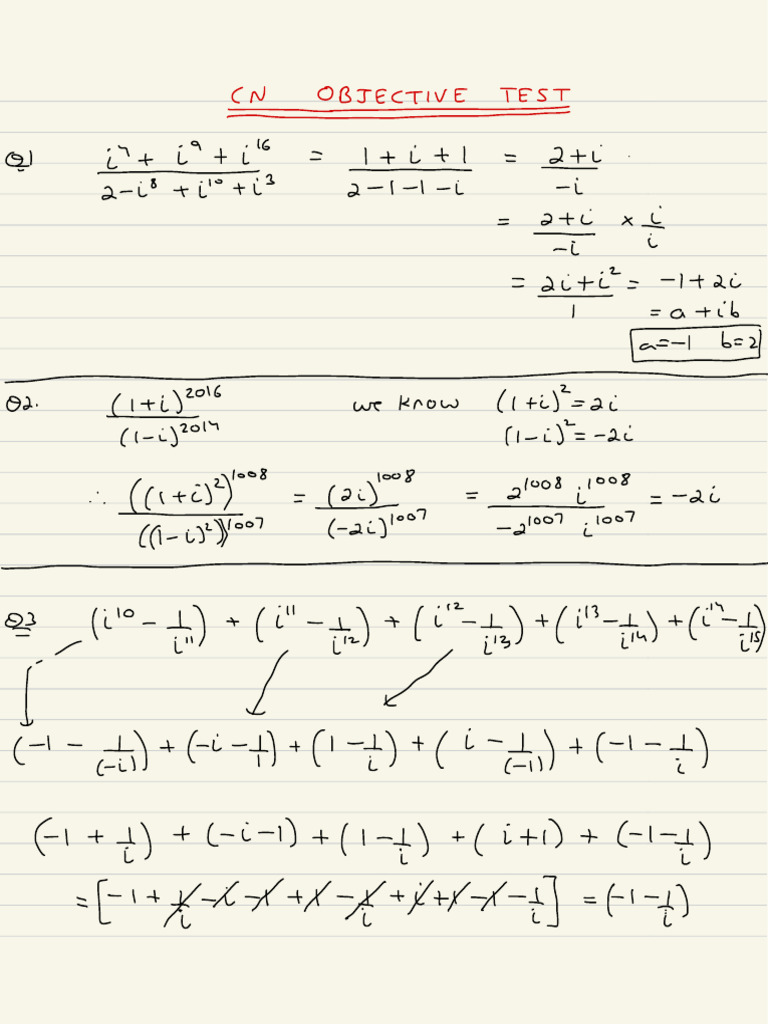 CN OBJECTIVE TEST
Q1 (i^4 + i^9 + i^16)/(2-i^8 + i^10 + i^3) = (1+i+1)/(2-1-1-i) = (2+i)/(-i)
= (2+i)/(-i) × i/i
= (2i+i^2)/1 = -1+2i
= a+ib
a=-1 b=2
Q2. (1+i)^2016/(1-i)^2014 we know (1+i)^2=2i
(1-i)^2=-2i
∴ ((1+i)^2)^1008/((1-i)^2)^1007 = (2i)^1008/(-2i)^1007 = 2^1008 i^1008/-2^1007 i^1007 = -2i
Q3 (i^10 - 1/i^11) + (i^11 - 1/i^12) + (i^12 - 1/i^13) + (i^13 - 1/i^14) + (i^14 - 1/i^15)
(-1 - 1/(-i)) + (-i - 1/1) + (1 - 1/i) + (i - 1/(-1)) + (-1 - 1/i)
(-1 + 1/i) + (-i-1) + (1 - 1/i) + (i+1) + (-1 - 1/i)
= [-1 + 1/i - i - 1 + 1 - 1/i + i + 1 - 1 - 1/i] = (-1 - 1/i)